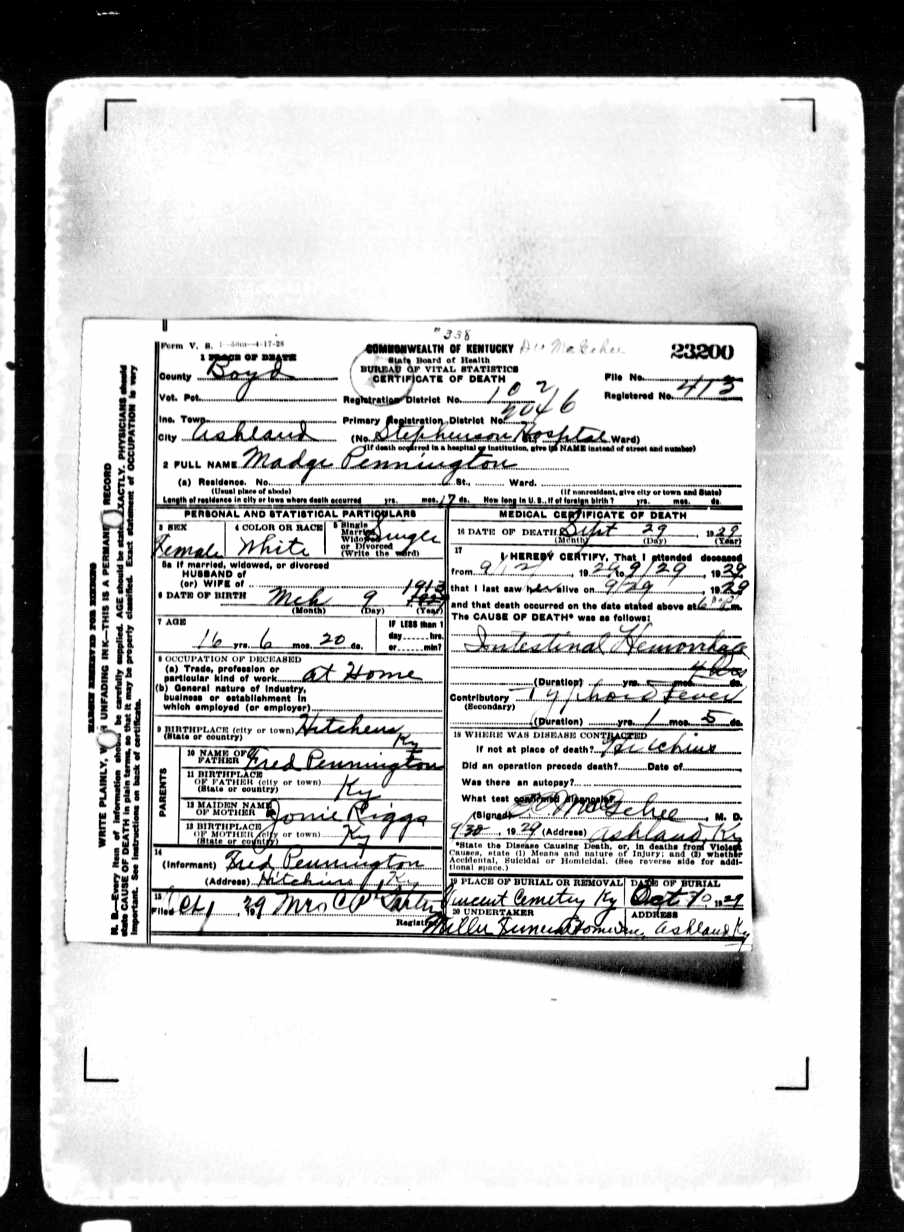 "338
Form V. S. 1—50m—4-17-28
COMMONWEALTH OF KENTUCKY
23200
1 PLACE OF DEATH
State Board of Health
BUREAU OF VITAL STATISTICS
CERTIFICATE OF DEATH
County Boyd
File No.
Vot. Pct.
Registration District No. 102
Registered No. 413
Inc. Town
Primary Registration District No. 2046
City Ashland
(No. Stephenson Hospital St. Ward)
(If death occurred in a hospital or institution, give its NAME instead of street and number)
2 FULL NAME Madge Pennington
(a) Residence. No. St., Ward.
(Usual place of abode) (If nonresident, give city or town and State)
Length of residence in city or town where death occurred yrs. mos. 17 ds. How long in U. S., if of foreign birth? yrs. mos. ds.
PERSONAL AND STATISTICAL PARTICULARS
3 SEX
Female
4 COLOR OR RACE
White
5 Single
Married
Widowed
or Divorced
(Write the word)
Single
5a If married, widowed, or divorced
HUSBAND of
(or) WIFE of
6 DATE OF BIRTH Mch 9 1913
(Month) (Day) (Year)
7 AGE
16 yrs. 6 mos. 20 ds.
IF LESS than 1
day hrs.
or min?
8 OCCUPATION OF DECEASED
(a) Trade, profession or
particular kind of work at Home
(b) General nature of industry,
business or establishment in
which employed (or employer)
9 BIRTHPLACE (city or town) Hitchins
(State or country) Ky
PARENTS
10 NAME OF
FATHER Fred Pennington
11 BIRTHPLACE
OF FATHER (city or town)
(State or country) Ky
12 MAIDEN NAME
OF MOTHER Riggs
13 BIRTHPLACE
OF MOTHER (city or town)
(State or country) Ky
14
(Informant) Fred Pennington
(Address) Hitchins Ky
15
Filed 29 Mrs C P
Registrar
MEDICAL CERTIFICATE OF DEATH
16 DATE OF DEATH Sept 29 1929
(Month) (Day) (Year)
17
I HEREBY CERTIFY, That I attended deceased
from 9/12, 1929 to 9/29, 1929
that I last saw her alive on 9/29, 1929
and that death occurred on the date stated above at 6 P m.
The CAUSE OF DEATH* was as follows:
Intestinal Hemorrhage
(Duration) yrs. mos. ds.
Contributory Typhoid Fever
(Secondary)
(Duration) yrs. 1 mos. 5 ds.
18 WHERE WAS DISEASE CONTRACTED
If not at place of death? Hitchins
Did an operation precede death? Date of
Was there an autopsy?
What test confirmed diagnosis?
(Signed) McGehee, M. D.
9/30, 1929 (Address) Ashland, Ky
*State the Disease Causing Death, or, in deaths from Violent
Causes, state (1) Means and nature of Injury; and (2) whether
Accidental, Suicidal or Homicidal. (See reverse side for addi-
tional space.)
19 PLACE OF BURIAL OR REMOVAL
Vincent Cemetery Ky
DATE OF BURIAL
Oct 1929
20 UNDERTAKER
Miller Funeral Home Inc.
ADDRESS
Ashland Ky
MARGIN RESERVED FOR BINDING
WRITE PLAINLY, WITH UNFADING INK—THIS IS A PERMANENT RECORD
N. B.—Every item of information should be carefully supplied. AGE should be stated EXACTLY. PHYSICIANS should
state CAUSE OF DEATH in plain terms, so that it may be properly classified. Exact statement of OCCUPATION is very
important. See instructions on back of certificate.